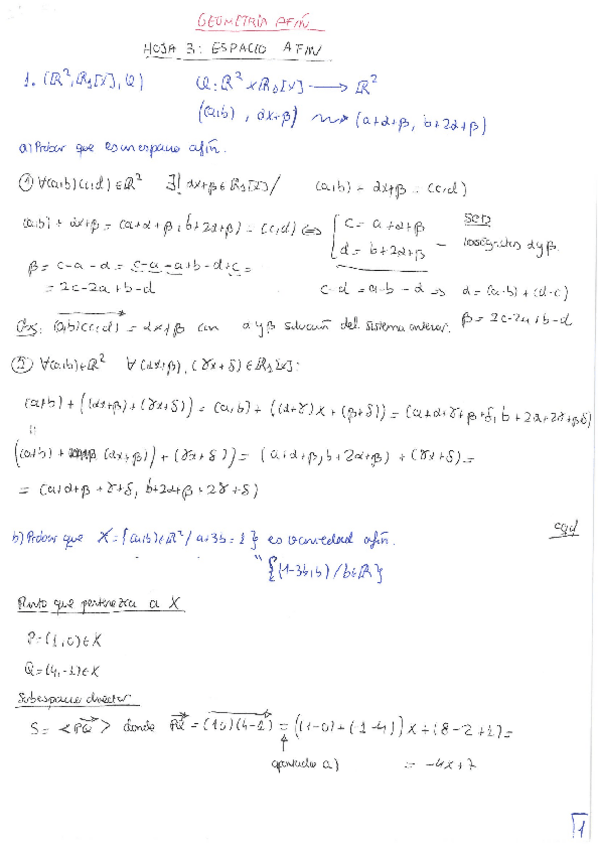 GEOMETRÍA AFÍN
HOJA 3: ESPACIO AFIN
1. (ℝ², ℝ₁[x], φ) φ: ℝ² × ℝ₁[x] ⟶ ℝ²
(a,b), αx+β ⇝ (a+α+β, b+2α+β)
a) Probar que es un espacio afín.
① ∀(a,b),(c,d) ∈ ℝ² ∃! αx+β ∈ ℝ₁[x] / (a,b) + αx+β = (c,d)
(a,b) + αx+β = (a+α+β, b+2α+β) = (c,d) ⟺ { c = a+α+β
d = b+2α+β
β = c-a-α = c-a-a+b-d+c =
= 2c-2a+b-d c-d = a-b-α ⟹ α = (a-b)+(d-c)
Obs: (a,b)(c,d) = αx+β con α y β solución del sistema anterior. β = 2c-2a+b-d
② ∀(a,b)∈ℝ² ∀(αx+β), (γx+δ) ∈ ℝ₁[x]:
(a,b) + ((αx+β)+(γx+δ)) = (a,b) + ((α+γ)x + (β+δ)) = (a+α+γ+β+δ, b+2α+2γ+β+δ)
((a,b) + (αx+β)) + (γx+δ) = (a+α+β, b+2α+β) + (γx+δ) =
= (a+α+β+γ+δ, b+2α+β+2γ+δ)
cqd
b) Probar que X = {(a,b)∈ℝ² / a+3b=1} es variedad afín.
{(1-3b,b) / b∈ℝ}
Punto que pertenezca a X
P=(1,0)∈X
Q=(4,-1)∈X
Subespacio director
S = <PQ> donde PQ = (1,0)(4,-1) = ((1-0)+(-1-4))x + (8-2+1) =
apartado a) = -4x+7
1